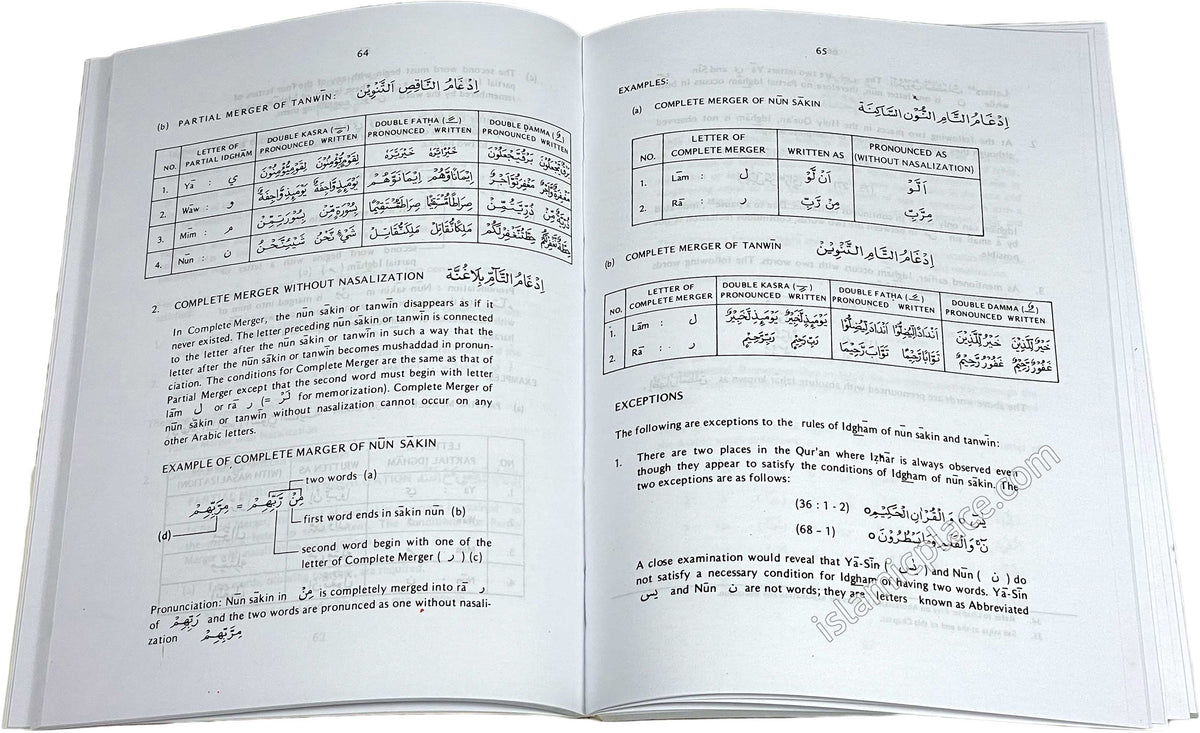 64
(b) PARTIAL MERGER OF TANWĪN: اِدْغَامُ النَّاقِصِ التَّنْوِيْنِ
NO. LETTER OF PARTIAL IDGHĀM DOUBLE KASRA PRONOUNCED WRITTEN DOUBLE FATHA PRONOUNCED WRITTEN DOUBLE DAMMA PRONOUNCED WRITTEN
1. Yā : ي
2. Wāw : و
3. Mīm : م
4. Nūn : ن
2. COMPLETE MERGER WITHOUT NASALIZATION اِدْغَامُ التَّآمِّ بِلَاغُنَّة
In Complete Merger, the nūn sākin or tanwīn disappears as if it
never existed. The letter preceding nūn sākin or tanwīn is connected
to the letter after the nūn sākin or tanwīn in such a way that the
letter after the nūn sākin or tanwīn becomes mushaddad in pronun-
ciation. The conditions for Complete Merger are the same as that of
Partial Merger except that the second word must begin with letter
lām ل or rā ر (= لَرْ for memorization). Complete Merger of
nūn sākin or tanwīn without nasalization cannot occur on any
other Arabic letters.
EXAMPLE OF COMPLETE MARGER OF NŪN SĀKIN
two words (a)
مِنْ رَّبِّهِمْ = مِرَّبِّهِمْ
first word ends in sākin nūn (b)
(d)
second word begin with one of the
letter of Complete Merger ( ر ) (c)
Pronunciation: Nūn sākin in مِنْ is completely merged into rā ر
of رَبِّهِمْ and the two words are pronounced as one without nasali-
zation مِرَّبِّهِمْ
65
EXAMPLES:
(a) COMPLETE MERGER OF NŪN SĀKIN اِدْغَامُ التَّامِ النُّوْنِ السَّاكِنَة
NO. LETTER OF COMPLETE MERGER WRITTEN AS PRONOUNCED AS (WITHOUT NASALIZATION)
1. Lām : ل اَنْ لَّوْ اَلَّوْ
2. Rā : ر مِنْ رَّبِّ مِرَّبِّ
(b) COMPLETE MERGER OF TANWĪN اِدْغَامُ التَّامِ التَّنْوِيْنِ
NO. LETTER OF COMPLETE MERGER DOUBLE KASRA PRONOUNCED WRITTEN DOUBLE FATHA PRONOUNCED WRITTEN DOUBLE DAMMA PRONOUNCED WRITTEN
1. Lām : ل
2. Rā : ر
EXCEPTIONS
The following are exceptions to the rules of Idgham of nūn sākin and tanwīn:
1. There are two places in the Qur'an where Izhār is always observed even
though they appear to satisfy the conditions of Idgham of nūn sākin. The
two exceptions are as follows:
(36 : 1 - 2) يٰسٓ ۝ وَالْقُرْاٰنِ الْحَكِيْمِ ۝
(68 – 1) نٓ ۝ وَالْقَلَمِ وَمَا يَسْطُرُوْنَ ۝
A close examination would reveal that Yā-Sīn ( يٰسٓ ) and Nūn ( ن ) do
not satisfy a necessary condition for Idgham of having two words. Yā-Sīn
يٰسٓ and Nūn ن are not words; they are letters known as Abbreviated
islamicplace.com